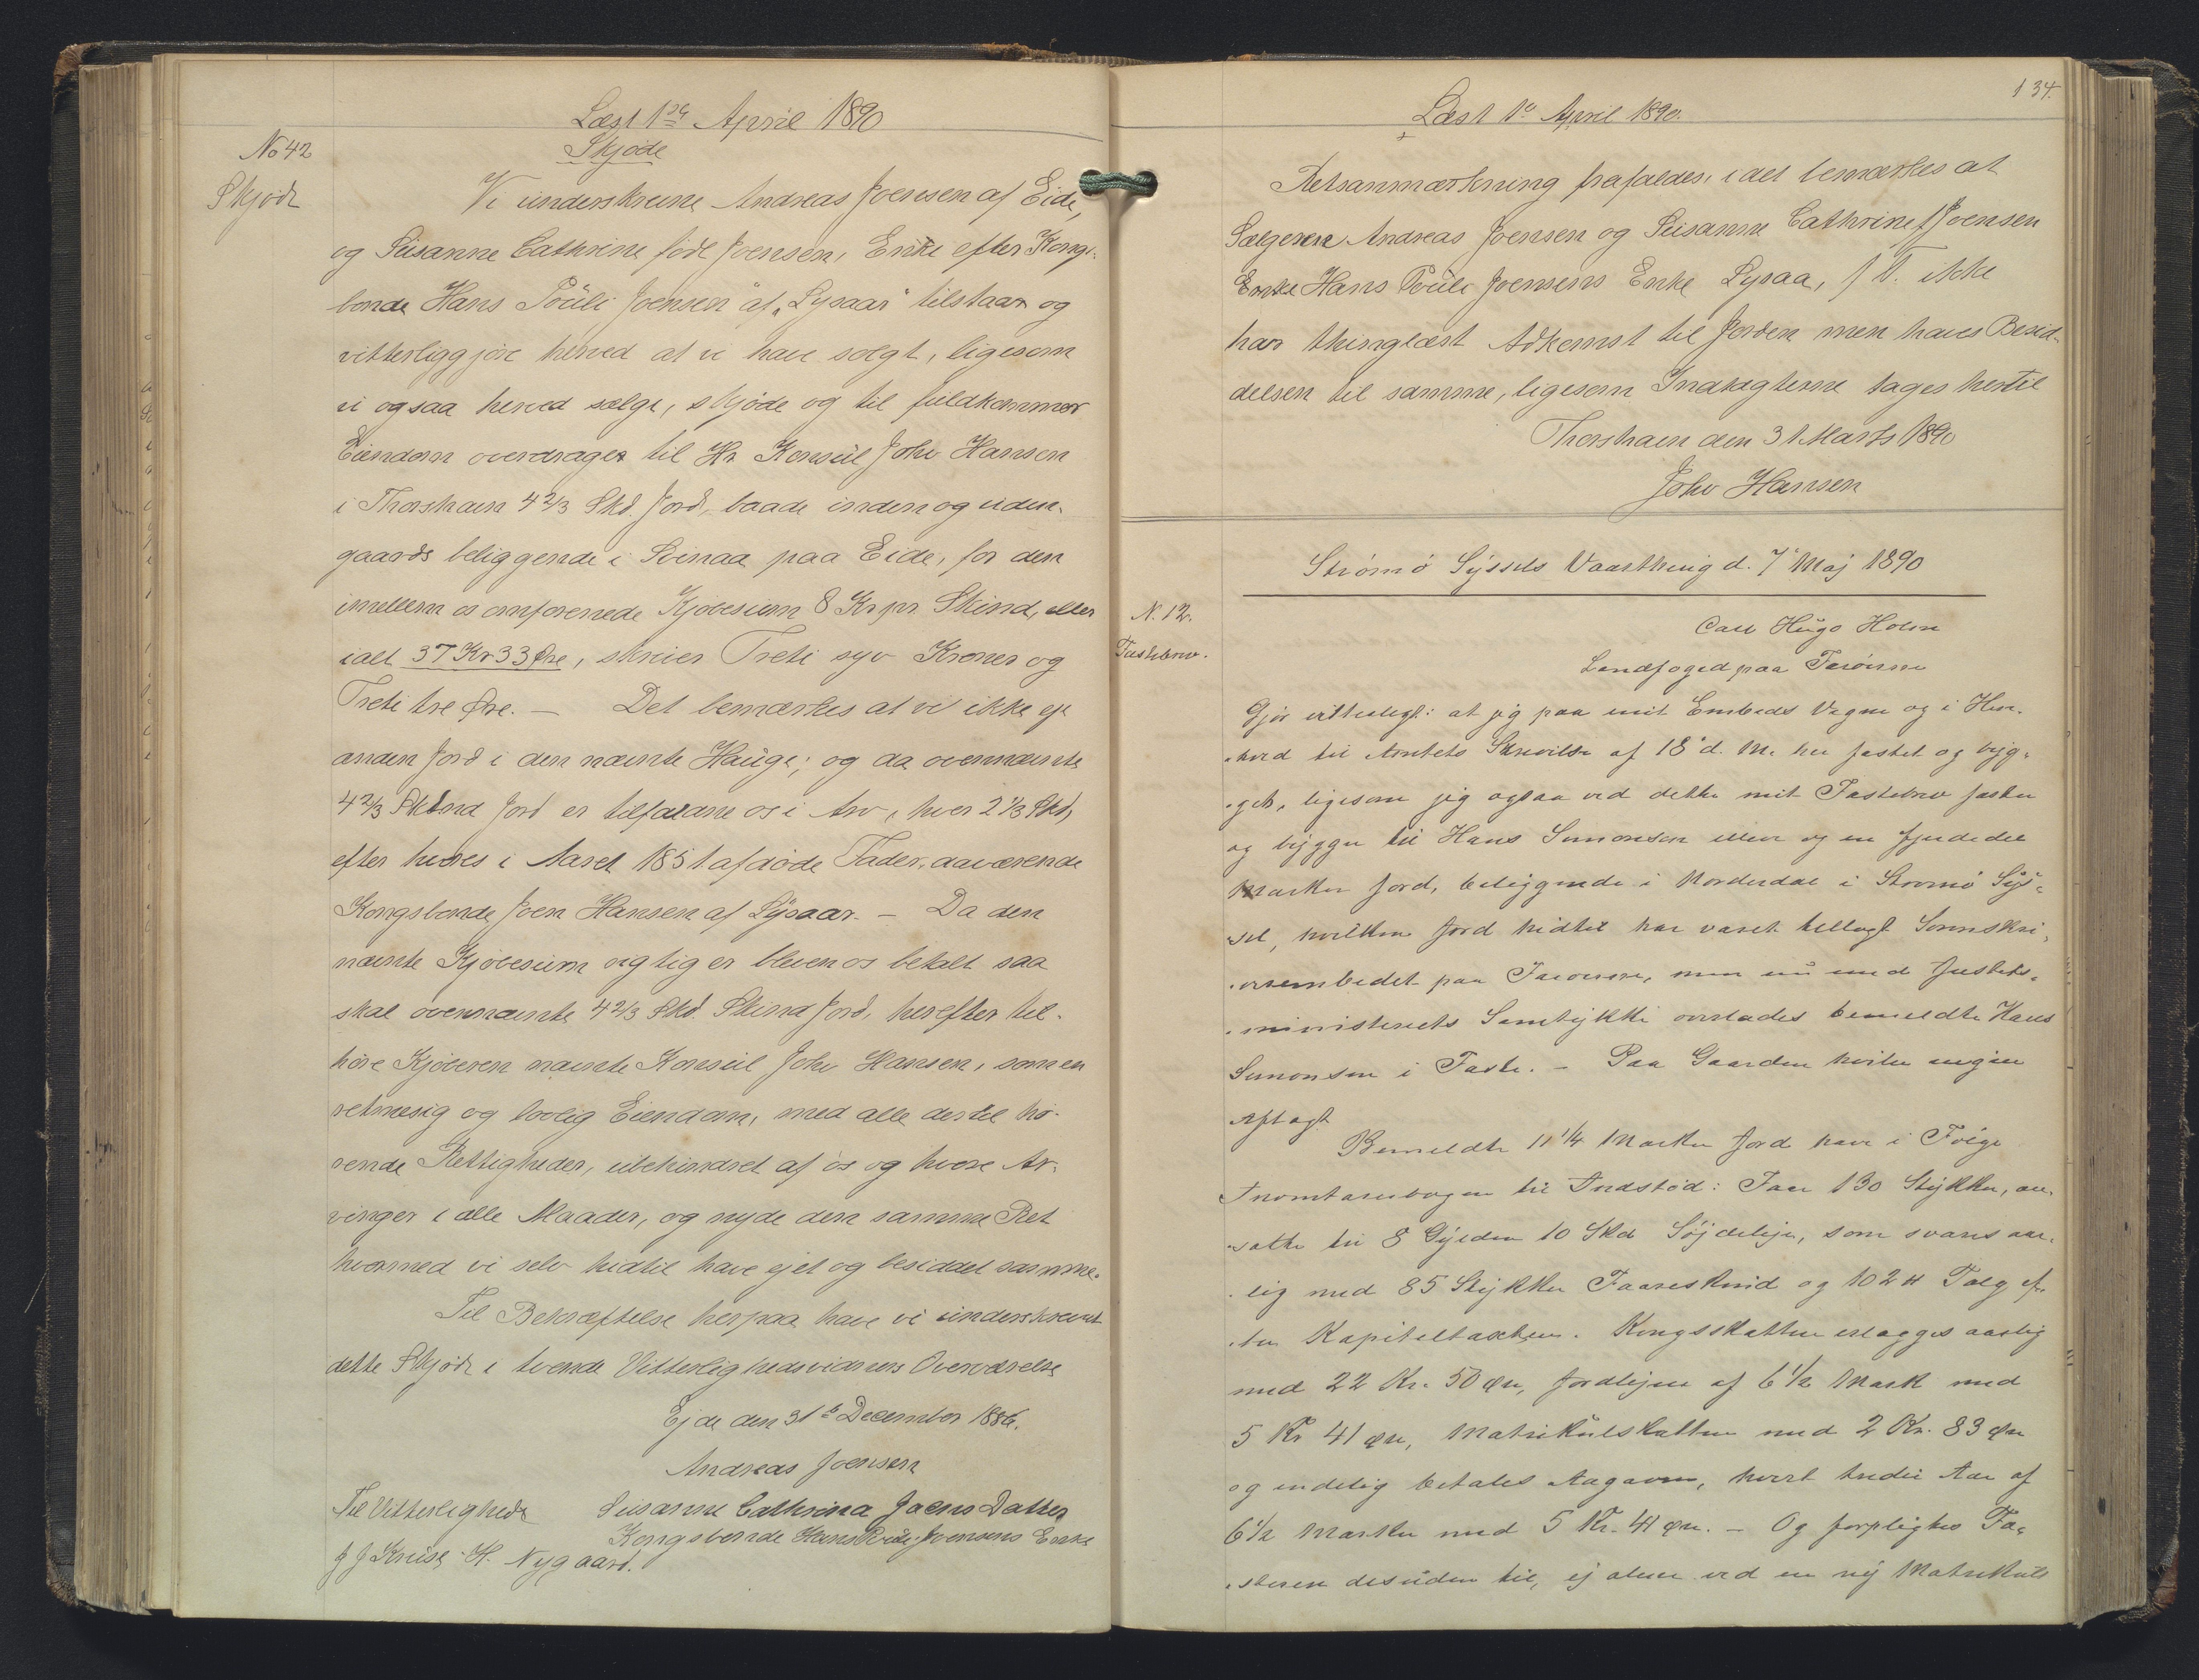 Læst 1ste April 1890
No 42
Skjøde
Skjøde
Vi underskrevne Andreas Joensen af Eide,
og Susanne Cathrine født Joensen, Enke efter Kongs-
bonde Hans Pouli Joensen af "Lysaar" tilstaar og
vitterliggjøre herved at vi have solgt, ligesom
vi ogsaa herved sælge, skjøde og til fuldkommen
Eiendom overdrager til Hr Konsul John Hansen
i Thorshavn 4 2/3 Skd. Jord, baade inden og uden-
gaards beliggende i Svinaa paa Eide, for den
imellem os omforenede Kjøbesum 8 Kr pr Skind, eller
ialt 37 Kr 33 Øre, skriver Treti syv Kroner og
Treti tre Øre. — Det bemærkes at vi ikke eje
anden Jord i den nævnte Hauge; og da ovennævnte
4 2/3 Skind Jord er tilfaldne os i Arv, hver 2 1/3 Skd,
efter vores i Aaret 1851 afdøde Fader, daværende
Kongsbonde Joen Hansen af Lysaar. — Da den
nævnte Kjøbesum rigtig er bleven os betalt saa
skal ovennævnte 4 2/3 Skd. Skind Jord, herefter til-
høre Kjøberen nævnte Konsul John Hansen, som en
retmesig og lovlig Eiendom, med alle dertil hø-
rende Rettigheder, ubehindret af os og vore Ar-
vinger i alle Maader, og nyde den samme Ret
hvormed vi selv hidtil have ejet og besiddet samme.
Til Bekræftelse herpaa have vi underskrevet
dette Skjøde i tvende Vitterlighedsvidners Overværelse
Ejde den 31te December 1886.
Andreas Joensen
Til Vitterlighed Susanne Cathrina Joens Datter
Kongsbonde Hans Pouli Joensens Enke
J J Kruse H. Nygaard.
134.
Læst 1e April 1890.
Retsanmærkning frafaldes, idet bemærkes at
Sælgerne Andreas Joensen og Susanne Cathrine f Joensen
Enke Hans Pouli Joensens Enke Lysaa, f T. ikke
har thinglæst Adkomst til Jorden men haves Besid-
delsen til samme, ligesom Indtægterne tages hertil
Thorshavn den 31 Marts 1890
John Hansen
Strømø Syssels Vaarthing d. 7' Maj 1890
N. 12.
Fæstebrev.
Carl Hugo Holm
Landfoged paa Færøerne
Gjør vitterligt: at jeg paa mit Embeds Vegne og i Hen-
hold til Amtets Skrivelse af 18' d. M. har fæstet og byg-
get, ligesom jeg ogsaa ved dette mit Fæstebrev fæster
og bygger til Hans Simonsen elleve og en fjerdedel
Marker Jord, beliggende i Norderdal i Strømø Sys-
sel, hvilken Jord hidtil har været tillagt Sorenskri-
verembedet paa Færøerne, men nu med Justits-
ministeriets Samtykke overlades bemeldte Hans
Simonsen i Fæste. — Paa Gaarden hviler ingen
Aftægt
Bemeldte 11 1/4 Marker Jord have i Følge
Inventariebogen til Indstød: Faar 130 Stykker, an-
satte til 8 Gylden 10 Skd Søjdeleje, som svares aar-
lig med 85 Stykker Faareskind og 102 ℔ Talg ef-
ter Kapitelstaxten. Kongsskatten erlægges aarlig
med 22 Kr. 50 Øre, Jordlejen af 6 1/2 Mark med
5 Kr 41 Øre, Matrikulskatten med 2 Kr. 83 Øre
og endelig betales Aagaven, hvert tredie Aar af
6 1/2 Marker med 5 Kr. 41 Øre. — Og forpligtes Fæ-
steren desuden til, ej alene ved en ny Matrikuls